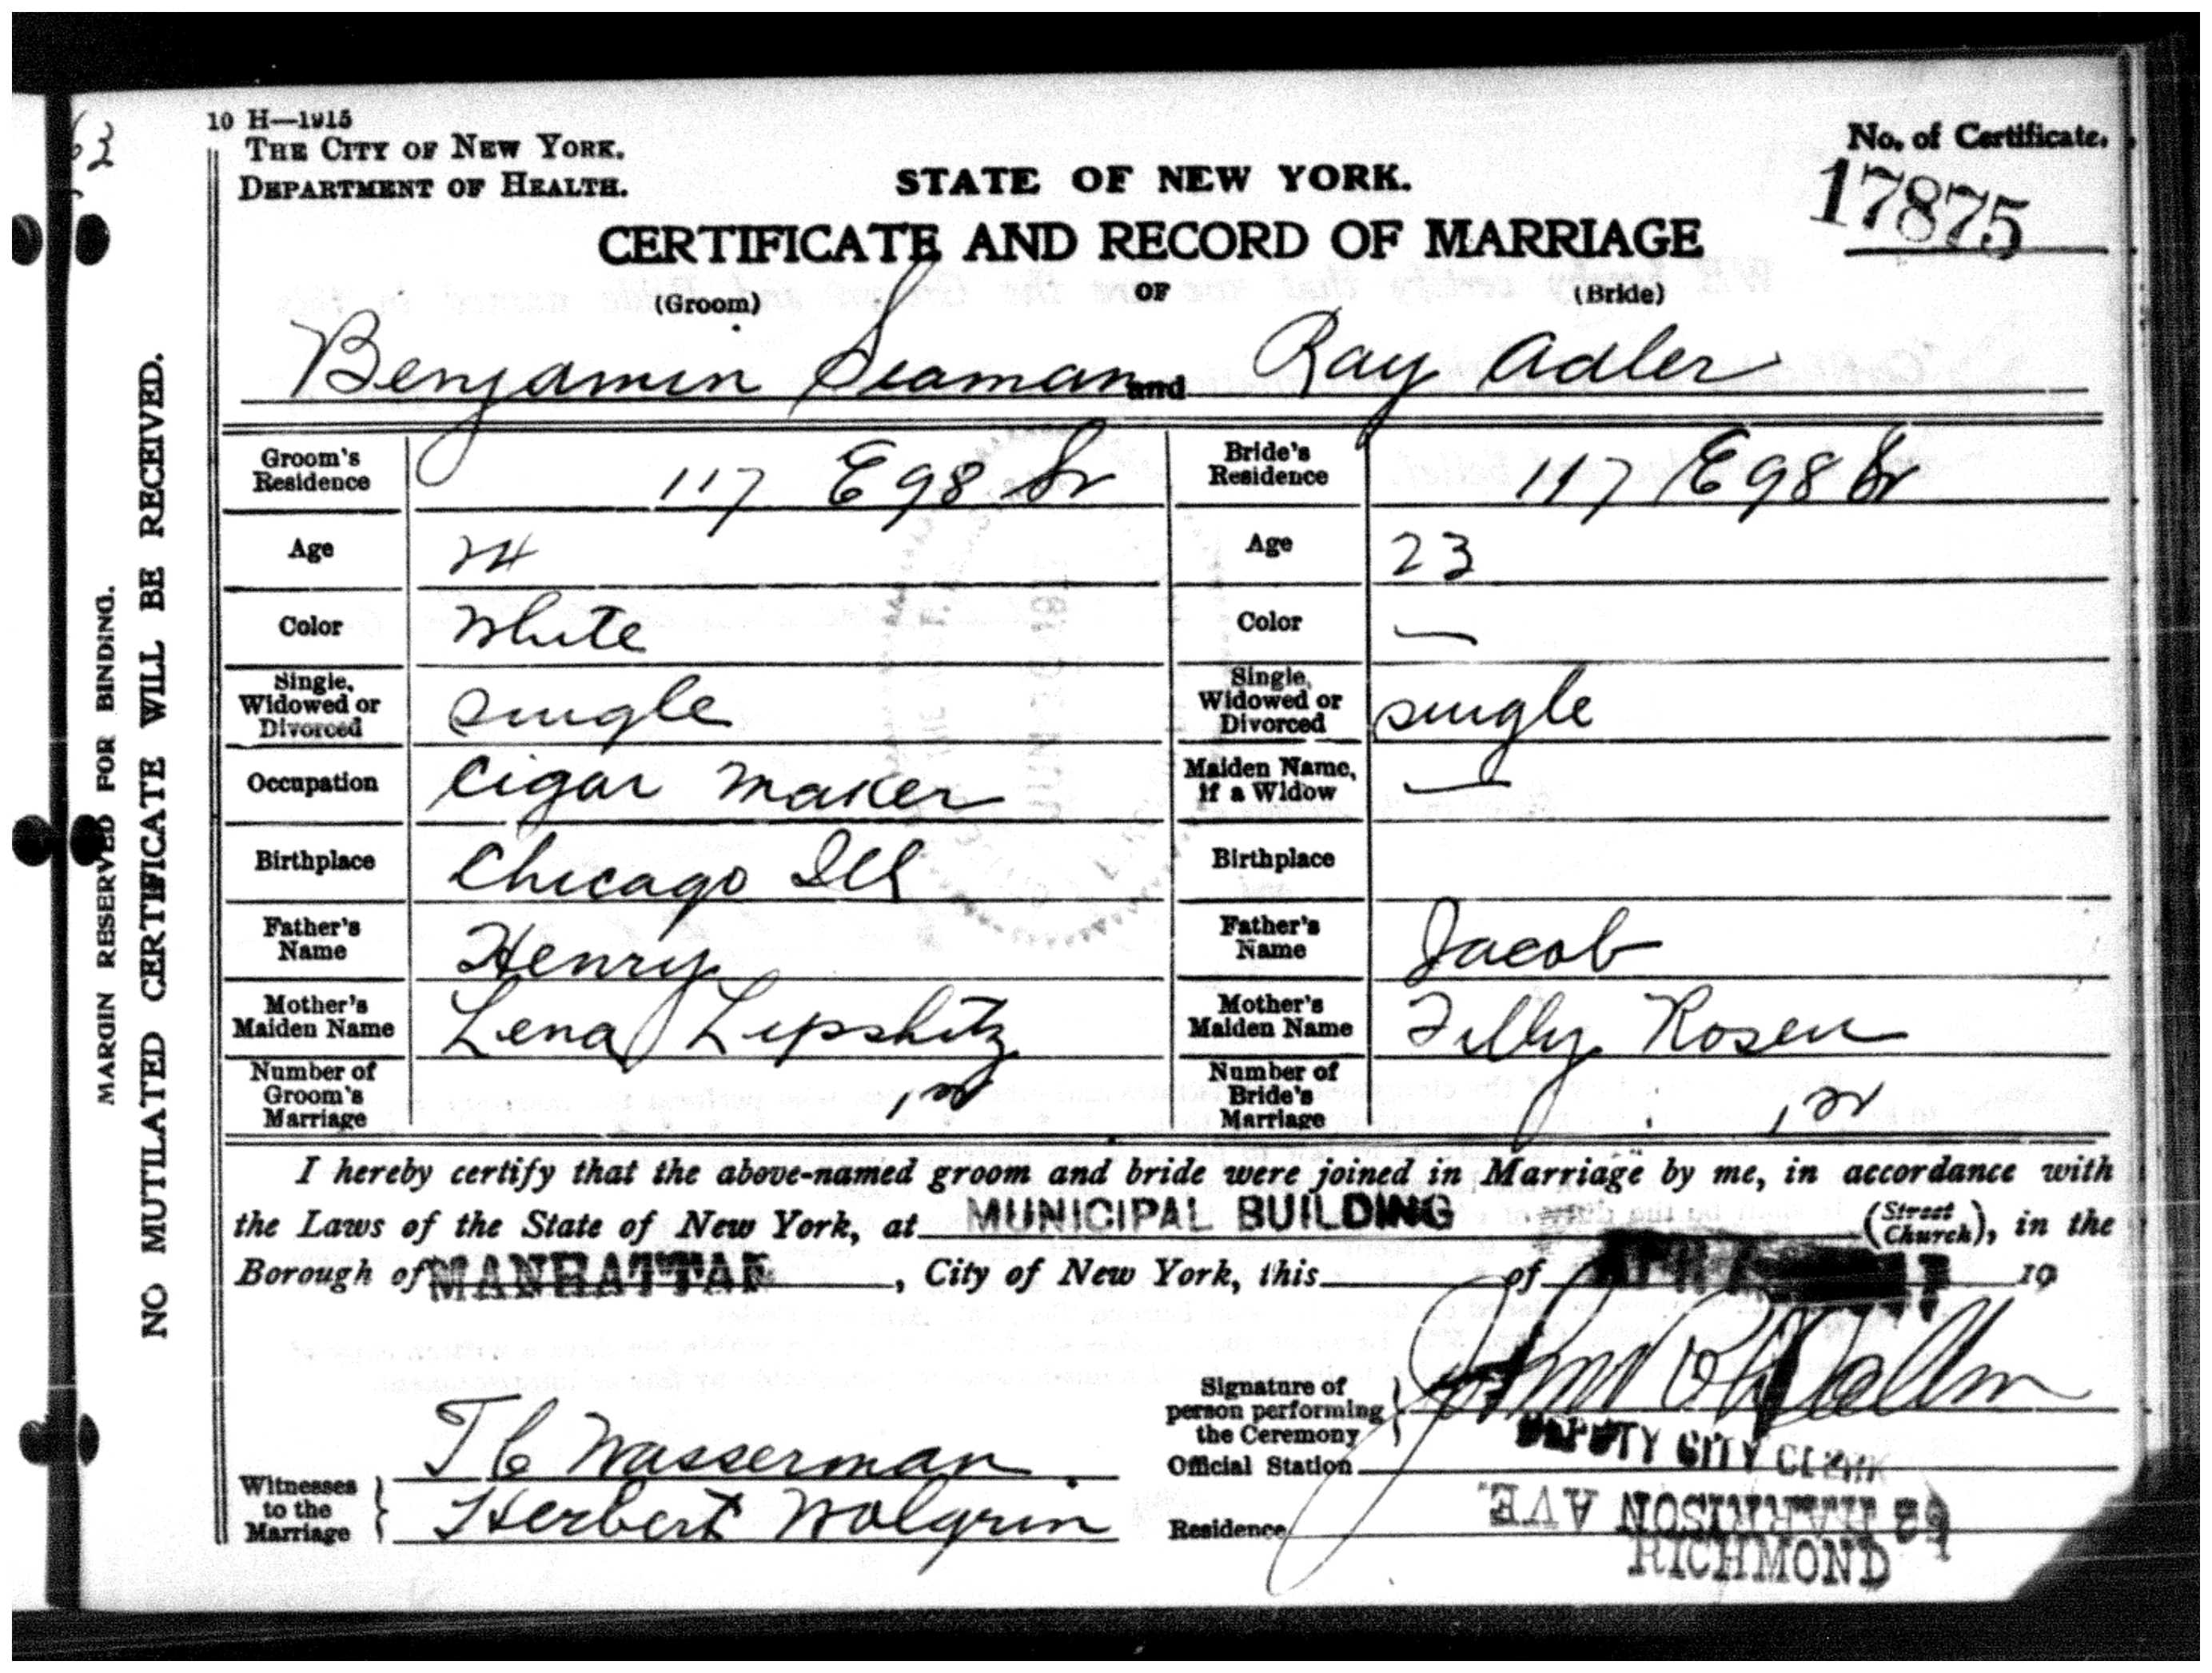 63
10 H—1915
THE CITY OF NEW YORK.
DEPARTMENT OF HEALTH.
No. of Certificate.
17875
STATE OF NEW YORK.
CERTIFICATE AND RECORD OF MARRIAGE
(Groom) OF (Bride)
Benjamin Seaman and Ray Adler
Groom's Residence 117 E 98 St Bride's Residence 117 E 98 St
Age 24 Age 23
Color White Color —
Single, Widowed or Divorced Single Single, Widowed or Divorced single
Occupation Cigar maker Maiden Name, if a Widow —
Birthplace Chicago Ill Birthplace
Father's Name Henry Father's Name Jacob
Mother's Maiden Name Lena Lipshitz Mother's Maiden Name Tilly Rosen
Number of Groom's Marriage 1st Number of Bride's Marriage 1st
I hereby certify that the above-named groom and bride were joined in Marriage by me, in accordance with
the Laws of the State of New York, at MUNICIPAL BUILDING (Street Church), in the
Borough of MANHATTAN, City of New York, this of 19
Signature of person performing the Ceremony
DEPUTY CITY CLERK
Official Station
Witnesses to the Marriage
T C Wasserman
Herbert Wolgrin
Residence HARRISON AVE.
RICHMOND
MARGIN RESERVED FOR BINDING.
NO MUTILATED CERTIFICATE WILL BE RECEIVED.